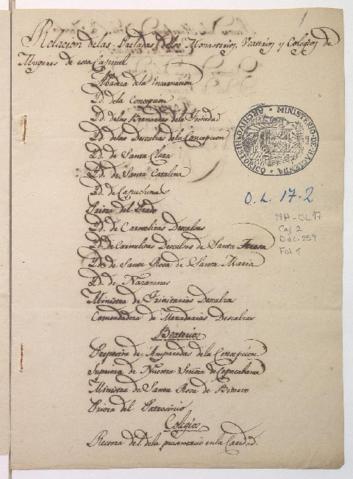 Relacion de las Preladas de los Monasterios, Beaterios y Colegios de
Mugeres de esta Capital
Abadesa de la Encarnacion
Yd. de la Concepcion
Yd. de las Bernardas de la Trinidad
Yd. de las Descalzas de la Concepcion
Yd. de Santa Clara
Yd. de Santa Catalina
Yd. de Capuchinas
Priora del Prado
Yd. de Carmelitas Descalzas
Yd. de Carmelitas Descalzas de Santa Teresa
Yd. de Santa Rosa de Santa Maria
Yd. de Nazarenas
Ministra de Trinitarias Descalzas
Comendadora de Mercedarias Descalzas
Beaterios
de Amparadas de la Concepcion
Superiora de Nuestra Señora de Copacabana
Ministra de Santa Rosa de Viterbo
Priora del Patrocinio
Colegios
Rectora del de la Caridad.
MINISTERIO DE HACIENDA
O.L. 17-2
MH-OL 17
Caj 2
Doc. 259
Fol 5